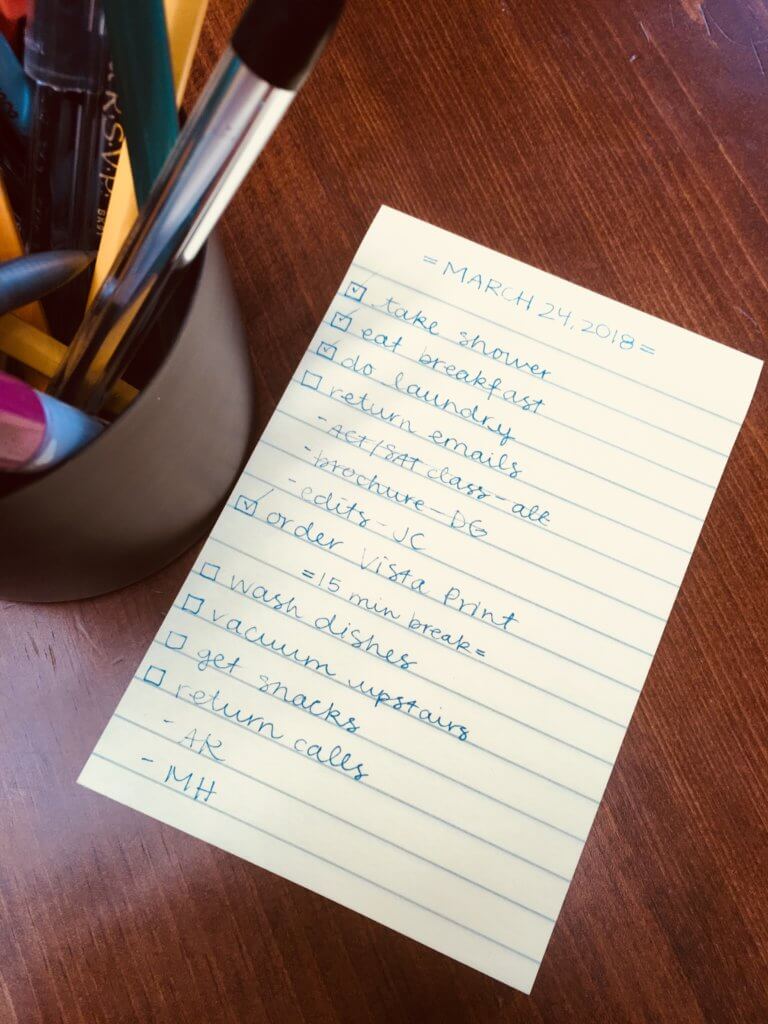 R.S.V.P.
= MARCH 24, 2018 =
☑ take shower
☑ eat breakfast
☑ do laundry
☐ return emails
- ACT/SAT class - alt
- brochure - DG
- edits - JC
☑ order Vista Print
= 15 min break =
☐ wash dishes
☐ vacuum upstairs
☐ get snacks
☐ return calls
- AR
- MH